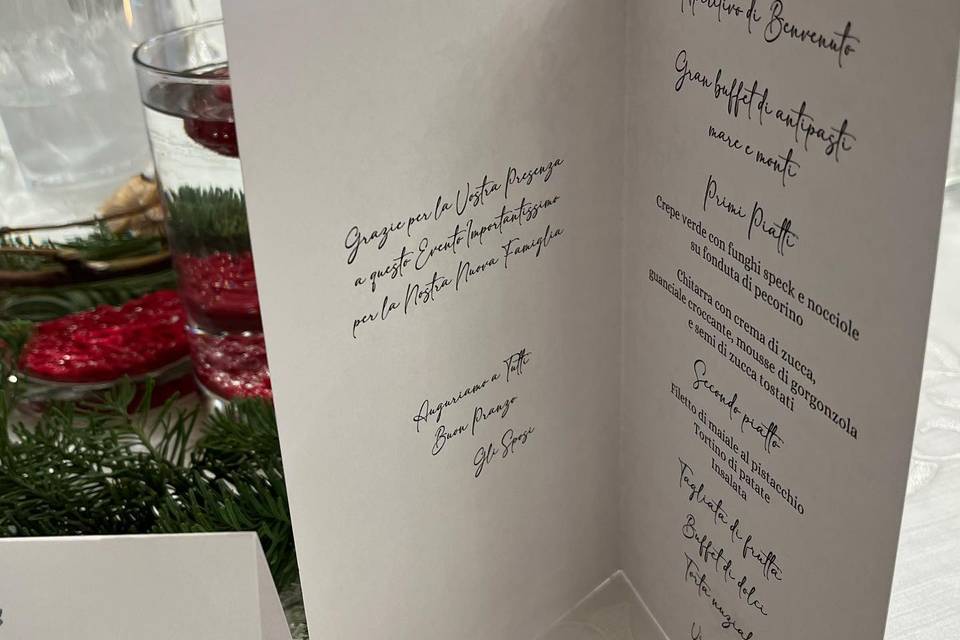 Grazie per la Vostra Presenza
a questo Evento Importantissimo
per la Nostra Nuova Famiglia
Auguriamo a Tutti
Buon Pranzo
Gli Sposi
Aperitivo di Benvenuto
Gran buffet di antipasti
mare e monti
Primi Piatti
Crepe verde con funghi speck e nocciole
su fonduta di pecorino
Chitarra con crema di zucca,
guanciale croccante, mousse di gorgonzola
e semi di zucca tostati
Secondo piatto
Filetto di maiale al pistacchio
Tortino di patate
Insalata
Tagliata di frutta
Buffet di dolci
Torta nuzial